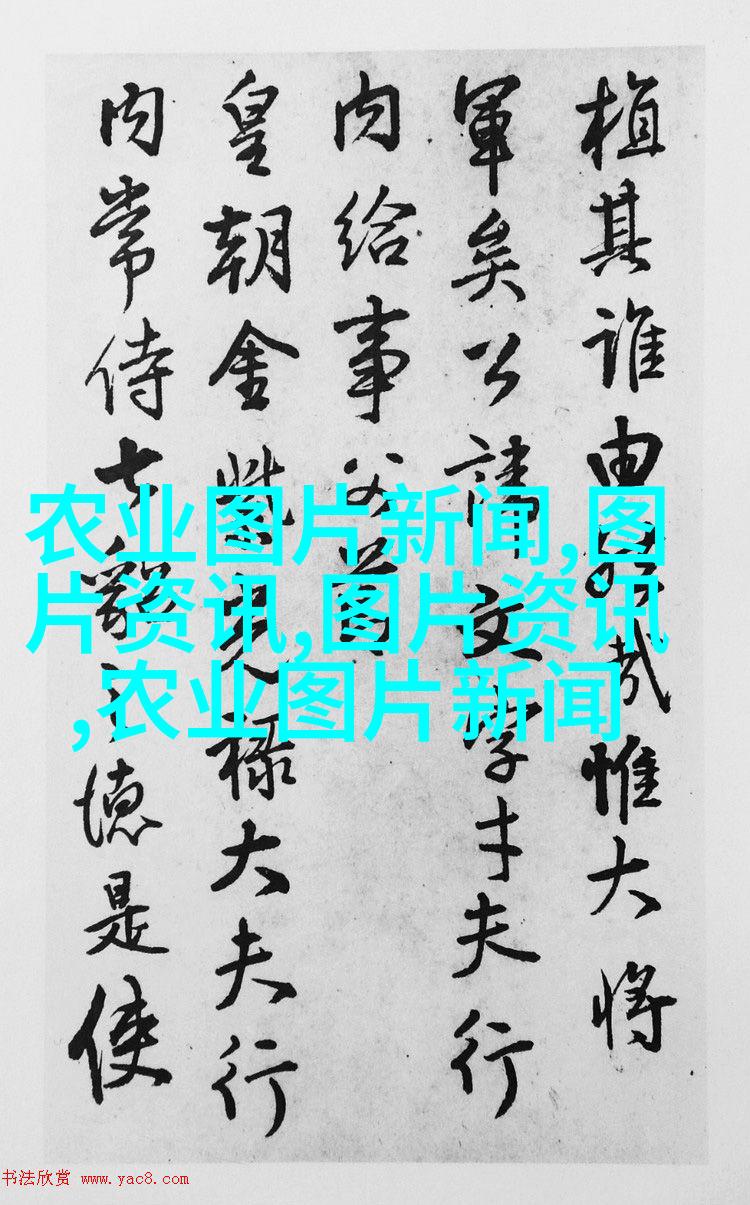 植其誰由哉惟大将
軍矣公諱文字才夫行
内給事父
皇朝金紫光禄大夫行
内常侍德是使
农业图片新闻,图
片资讯,图片资讯
,农业图片新闻
书法欣赏 www.yac8.com